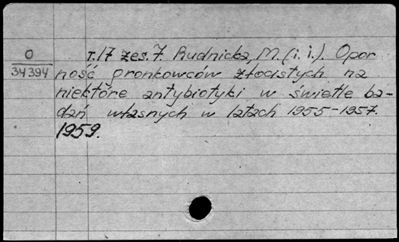 O
34394
t.17 zes.7. Rudnicka, M. (i.i.). Opor
ność gronkowców złocistych na
niektóre antybiotyki w świetle ba-
dań własnych w latach 1955-1957.
1959.